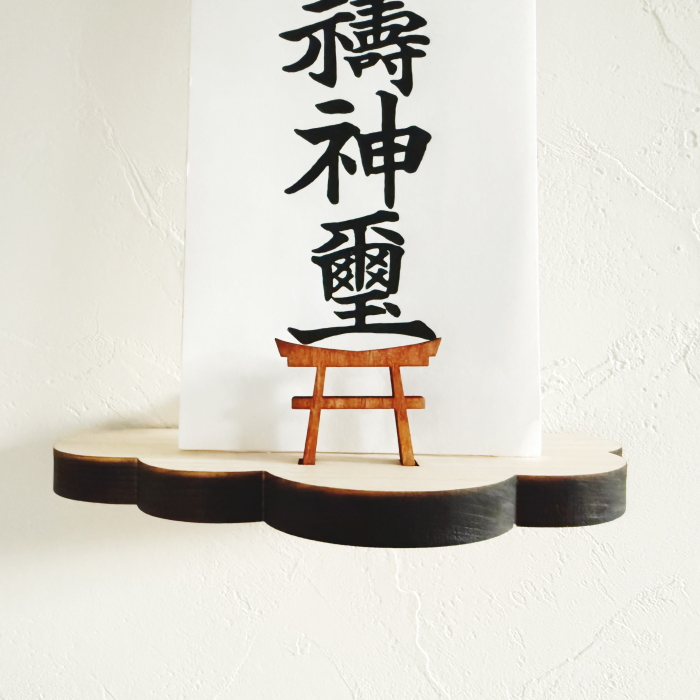 禱神璽